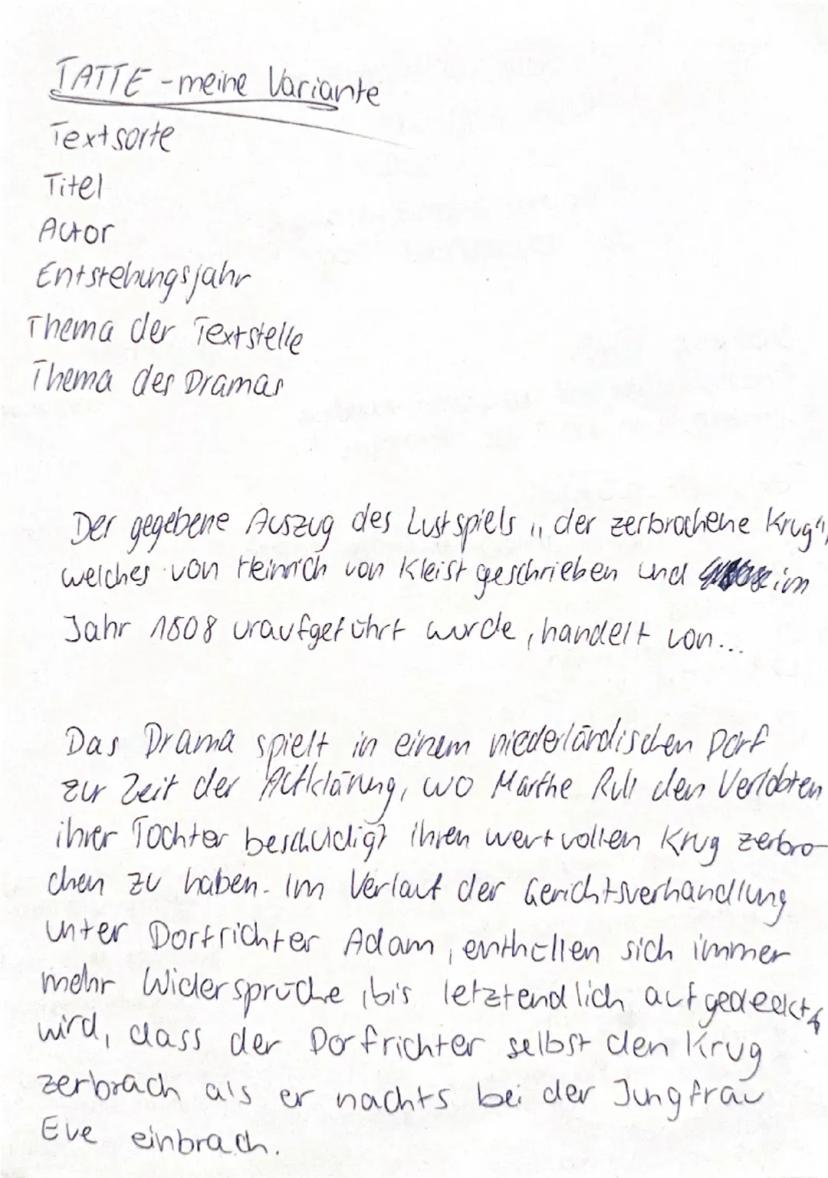 TATTE - meine Variante
Textsorte
Titel
Autor
Entstehungsjahr
Thema der Textstelle
Thema des Dramas
Der gegebene Auszug des Lustspiels „der zerbrochene Krug",
welches von Heinrich von Kleist geschrieben und im
Jahr 1808 uraufgeführt wurde, handelt von...
Das Drama spielt in einem niederländischen Dorf
zur Zeit der Aufklärung, wo Marthe Rull den Verlobten
ihrer Tochter beschuldigt ihren wertvollen Krug zerbro-
chen zu haben. Im Verlauf der Gerichtsverhandlung
unter Dorfrichter Adam, enthüllen sich immer
mehr Widersprüche, bis letztendlich aufgedeckt
wird, dass der Dorfrichter selbst den Krug
zerbrach als er nachts bei der Jungfrau
Eve einbrach.